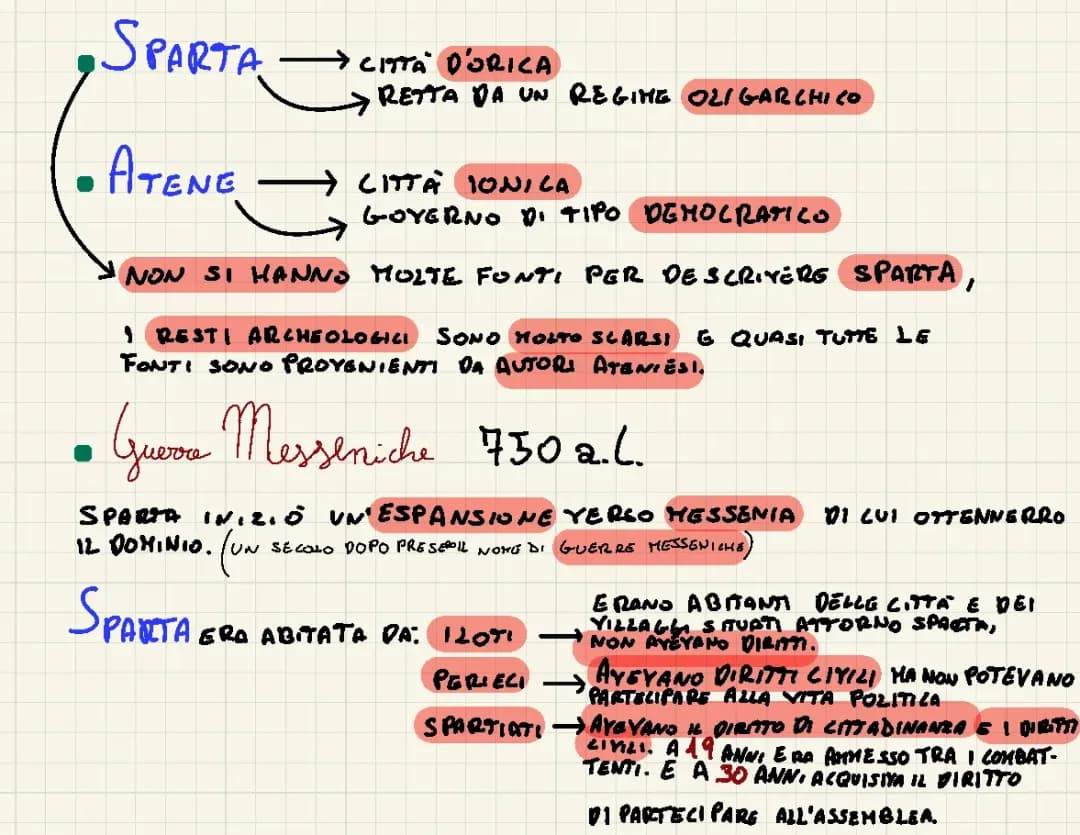 SPARTA → CITTÀ D'ORICA
→ RETTA DA UN REGIME OLIGARCHICO
ATENE → CITTÀ IONICA
→ GOVERNO DI TIPO DEMOCRATICO
NON SI HANNO MOLTE FONTI PER DESCRIVERE SPARTA,
I RESTI ARCHEOLOGICI SONO MOLTO SCARSI E QUASI TUTTE LE
FONTI SONO PROVENIENTI DA AUTORI ATENIESI.
Guerre Messeniche 750 a.C.
SPARTA INIZIÒ UN'ESPANSIONE VERSO MESSENIA DI CUI OTTENNERRO
IL DOMINIO. (UN SECOLO DOPO PRESE IL NOME DI GUERRE MESSENICHE)
SPARTA ERA ABITATA DA: ILOTI → ERANO ABITANTI DELLE CITTÀ E DEI
VILLAGGI SITUATI ATTORNO SPARTA,
NON AVEVANO DIRITTI.
PERIECI → AVEVANO DIRITTI CIVILI MA NON POTEVANO
PARTECIPARE ALLA VITA POLITICA
SPARTIATI → AVEVANO IL DIRITTO DI CITTADINANZA E I DIRITTI
CIVILI. A 19 ANNI ERA AMMESSO TRA I COMBAT-
TENTI. E A 30 ANNI ACQUISIVA IL DIRITTO
DI PARTECIPARE ALL'ASSEMBLEA.